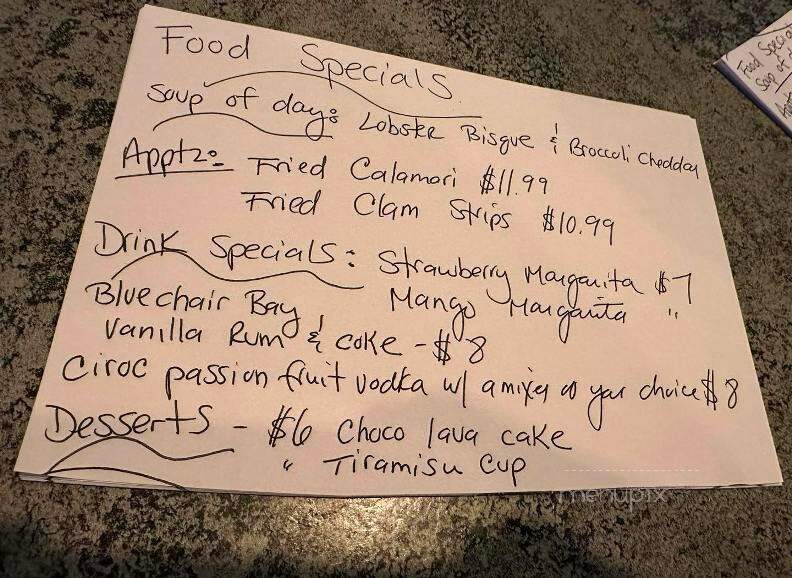 Food Specials
Soup of day: Lobster Bisque & Broccoli Cheddar
Apptz: Fried Calamari $11.99
Fried Clam Strips $10.99
Drink Specials: Strawberry Margarita $7
Mango Margarita "
Bluechair Bay
Vanilla Rum & coke - $8
Ciroc passion fruit vodka w/ a mixer of your choice $8
Desserts - $6 Choco lava cake
" Tiramisu Cup
menupix
Food Special
Soup of d